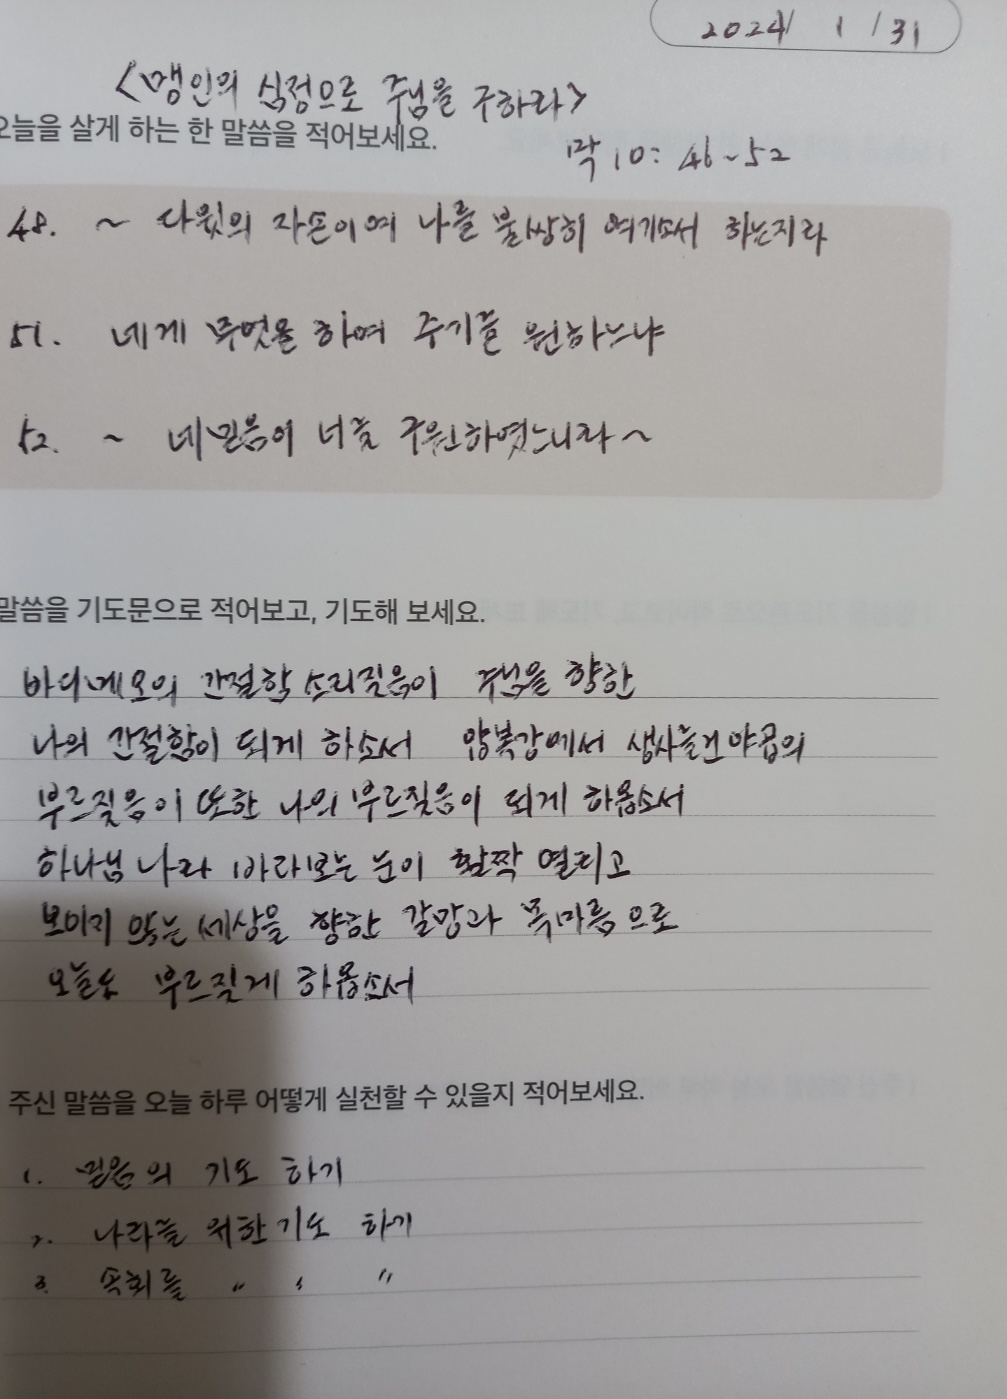 2024 / 1 / 31
<맹인의 심정으로 주님을 구하라>
오늘을 살게 하는 한 말씀을 적어보세요.
막 10: 46~52
48. ~ 다윗의 자손이여 나를 불쌍히 여기소서 하는지라
51. 네게 무엇을 하여 주기를 원하느냐
52. ~ 네 믿음이 너를 구원하였느니라~
말씀을 기도문으로 적어보고, 기도해 보세요.
바디메오의 간절한 소리질음이 주님을 향한
나의 간절함이 되게 하소서 얍복강에서 생사를건 야곱의
부르짖음이 또한 나의 부르짖음이 되게 하옵소서
하나님 나라 바라보는 눈이 활짝 열리고
보이지 않는 세상을 향한 갈망과 목마름으로
오늘도 부르짖게 하옵소서
주신 말씀을 오늘 하루 어떻게 실천할 수 있을지 적어보세요.
1. 믿음의 기도 하기
2. 나라를 위한 기도 하기
3. 속회를 〃 〃 〃